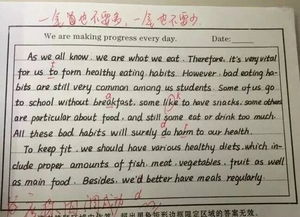 一念留也不要多，一念也不要少
We are making progress every day. Date:
As we all know, we are what we eat. Therefore, it's very vital
for us to form healthy eating habits. However, bad eating ha-
bits are still very common among us students. Some of us go
to school without breakfast, some like to have snacks, some others
are particular about food, and still some eat or drink too much.
All these bad habits will surely do harm to our health.
To keep fit, we should have various healthy diets, which in-
clude proper amounts of fish, meat, vegetables, fruit as well
as main food. Besides, we'd better have meals regularly.